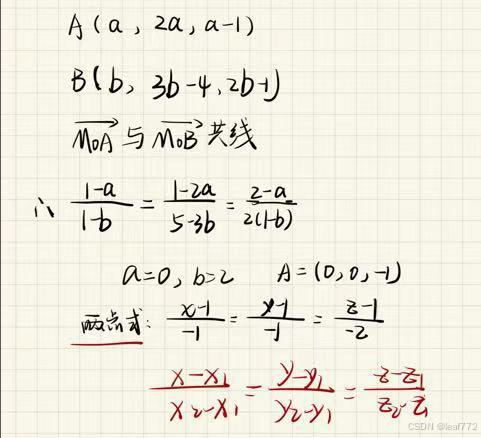 A(a, 2a, a-1)
B(b, 3b-4, 2b-1)
\overrightarrow{M₀A} 与 \overrightarrow{M₀B} 共线
∴ \frac{1-a}{1-b} = \frac{1-2a}{5-3b} = \frac{2-a}{2(1-b)}
a=0, b=2 A=(0,0,-1)
两点式: \frac{x-1}{-1} = \frac{y-1}{-1} = \frac{z-1}{-2}
\frac{x-x₁}{x₂-x₁} = \frac{y-y₁}{y₂-y₁} = \frac{z-z₁}{z₂-z₁}
CSDN @leaf772